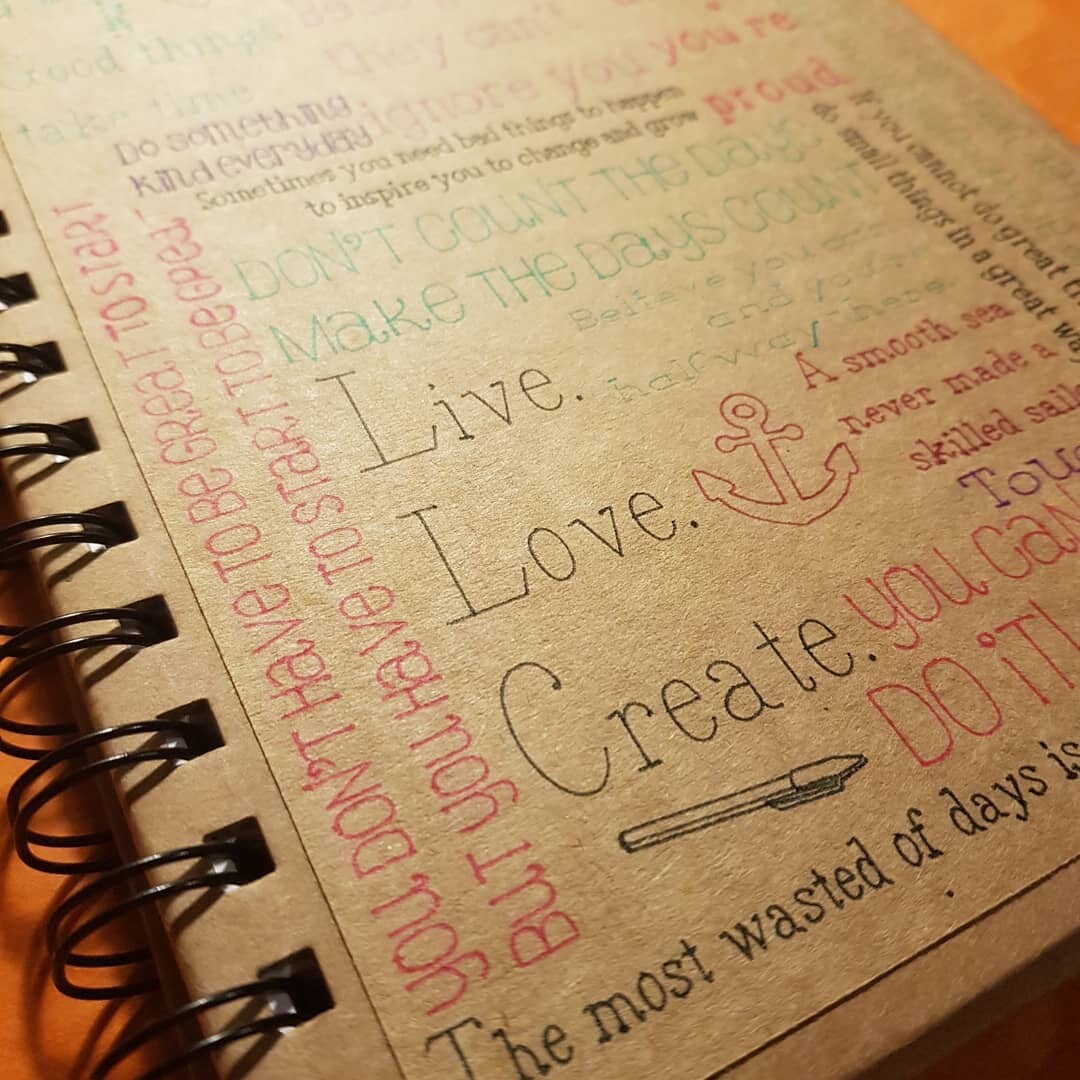 Good things
take time
they can't
ignore you you're
proud
Do something
kind everyday
Sometimes you need bad things to happen
to inspire you to change and grow
DON'T COUNT THE Days
Make THE Days COUNT
Believe you
and you
halfway there.
If you cannot do great
do small things in a great way
YOU DON'T Have TO Be GReaT TO START
BUT YOU Have TO START TO Be GReaT.
Live.
Love.
Create.
A smooth sea
never made a
skilled
you can
DO iT!
The most wasted of days is